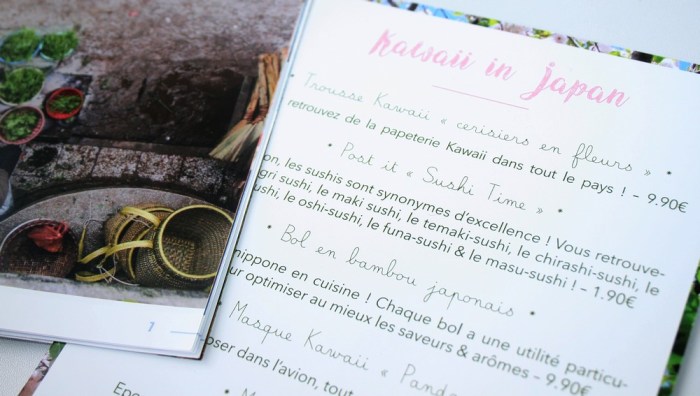 Kawaii in Japan
• Trousse Kawaii « cerisiers en fleurs » •
retrouvez de la papeterie Kawaii dans tout le pays ! - 9.90€
• Post it « Sushi Time » •
les sushis sont synonymes d'excellence ! Vous retrouve-
sushi, le maki sushi, le temaki-sushi, le chirashi-sushi, le
le oshi-sushi, le funa-sushi & le masu-sushi ! - 1.90€
• Bol en bambou japonais •
nippone en cuisine ! Chaque bol a une utilité particu-
optimiser au mieux les saveurs & arômes - 9.90€
• Masque Kawaii « Pand
oser dans l'avion, tout
1